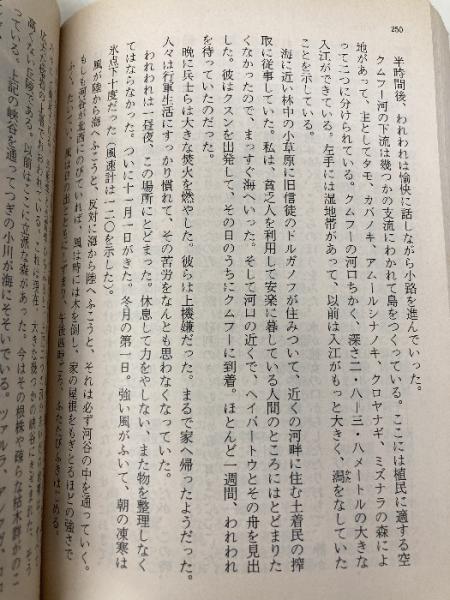 250
半時間後、われわれは愉快に話しながら小路を進んでいった。
クムフー河の下流は幾つかの支流にわかれて島をつくっている。ここには植民に適する空
地があって、主としてタモ、カバノキ、アムールシナノキ、クロヤナギ、ミズナラの森によ
って二つに分けられている。クムフーの河口ちかく、深さ二・八―三・八メートルの大きな
入江ができている。左手には湿地帯があって、以前は入江がもっと大きく、潟をなしていた
かた
ことを示している。
海に近い林中の小草原に旧信徒のドルガノフが住みついて、近くの河畔に住む土着民の搾
取に従事していた。私は、貧乏人を利用して安楽に暮している人間のところにはとどまりた
くなかったので、まっすぐ海へいった。そして河口の近くで、ヘイバートウとその舟を見出
した。彼はクスンを出発して、その日のうちにクムフーに到着。ほとんど一週間、われわれ
を待っていたのだった。
晩に兵士らは大きな焚火を燃やした。彼らは上機嫌だった。まるで家へ帰ったようだった。
人々は行軍生活にすっかり慣れて、その苦労をなんとも思わなくなっていた。
われわれは一昼夜、この場所にとどまった。休息して力をやしない、また物を整理しなく
てはならなかった。ついに十一月一日がきた。冬月の第一日。強い風がふいて、朝の凍寒は
氷点下十度だった（風速計は一二〇を示した）。
風が陸から海へふこうと、反対に海から陸へふこうと、それは必ず河谷の中を通っていく。
もしも河谷が北西にのびていれば、風は時には木を倒し、家の屋根をもぎとるほどの強さで
ふく。たいてい、風は日の出とともに
高くない丘陵である。以前はここに立派な森があった。今はその根株や疎らな枯木群がのこ
っている。上記の峡谷を通ってつぎの小川が海にそそいでいる。ツァルラ、